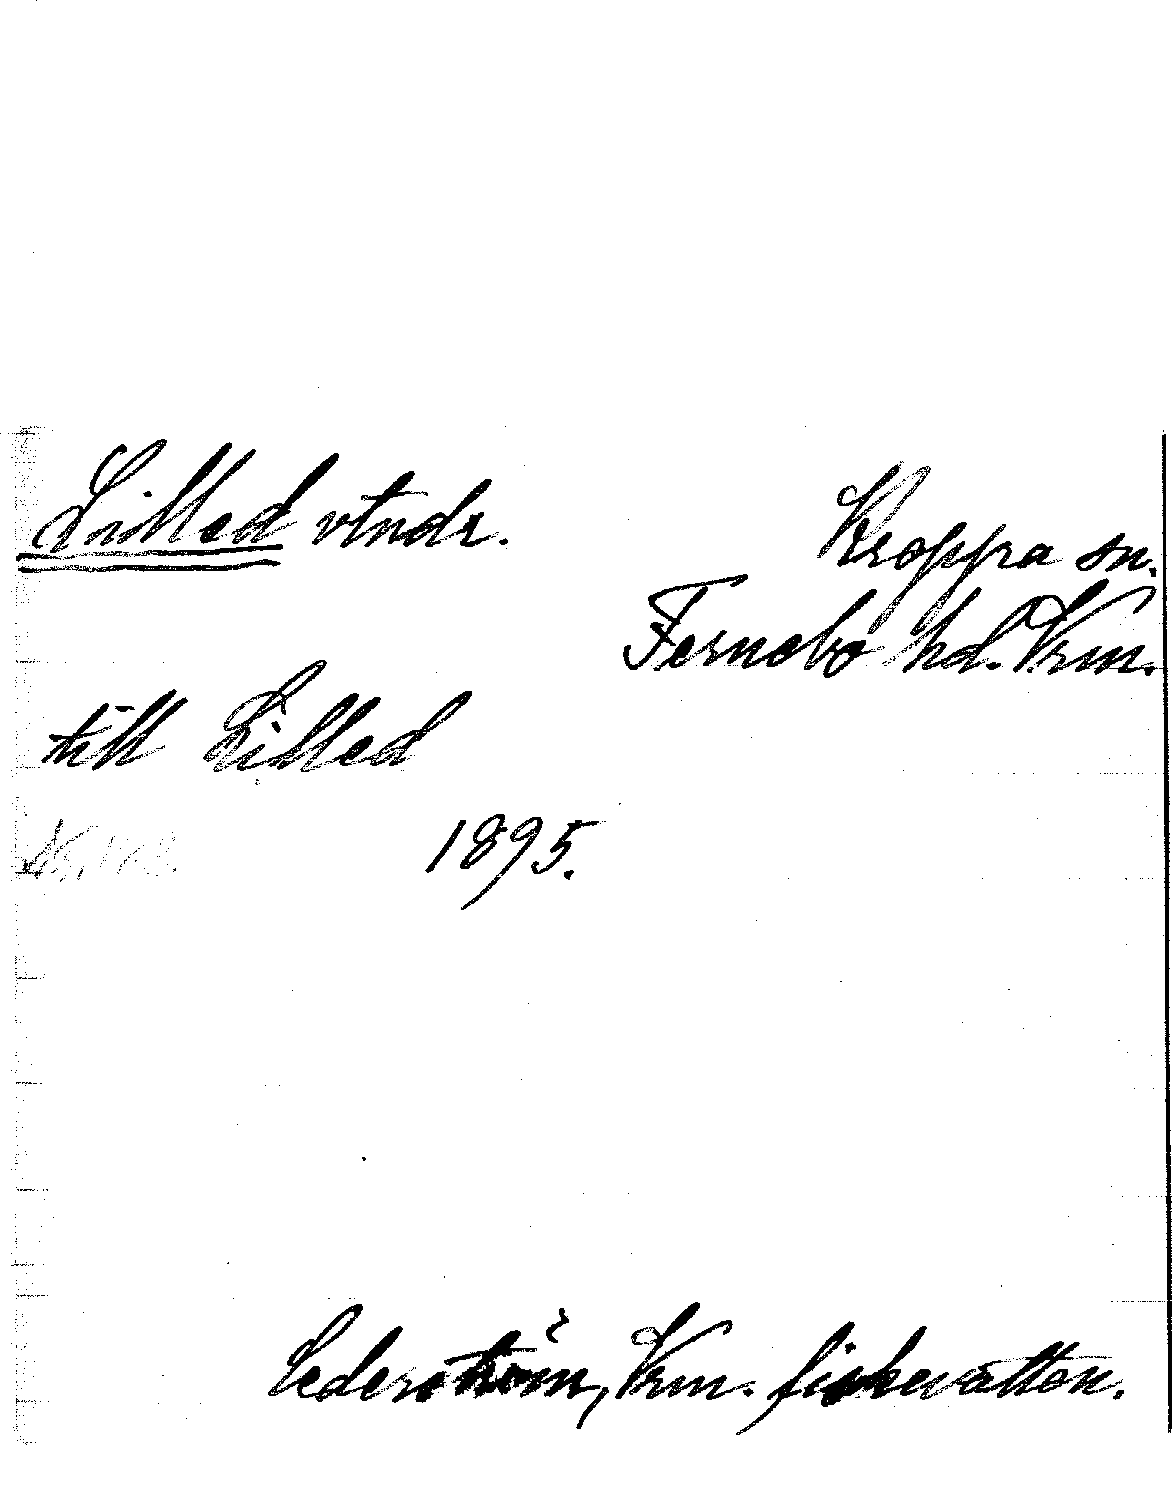 Lilled vtndr.
Kroppa sn.
Fernebo hd. Vrm.
till Lilled
1895.
Cederström, Vrm. fiskevatten.